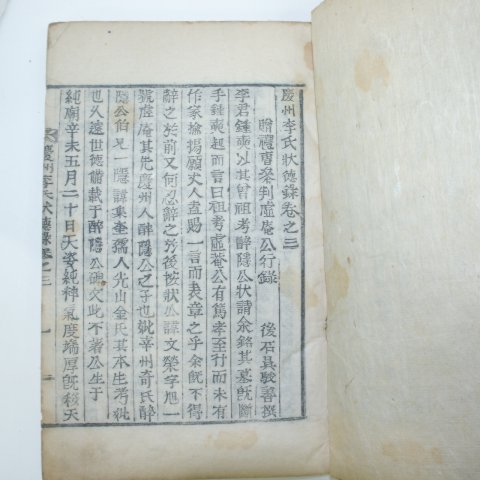 慶州李氏狀德錄卷之三
贈禮曹參判虛庵公行錄
後石吳駿善撰
李君鍾奭以其曾祖考醉隱公狀請余銘其墓旣斷
手鍾奭起而言曰祖考虛庵公有篤孝至行而未有
作家揄揚願丈人盡賜一言而表章之乎余旣不得
辭之於前又何忍辭之於後按狀公諱文榮字旭一
號虛庵其先慶州人醉隱公之子也妣幸州奇氏醉
隱公伯兄一隱諱集奎孺人光山金氏其本生考妣
也人遠世德備載于醉隱公碑文此不著公生于
純廟辛未五月二十日天姿純粹氣度端厚旣稜天
慶州李氏狀德錄卷之三
一